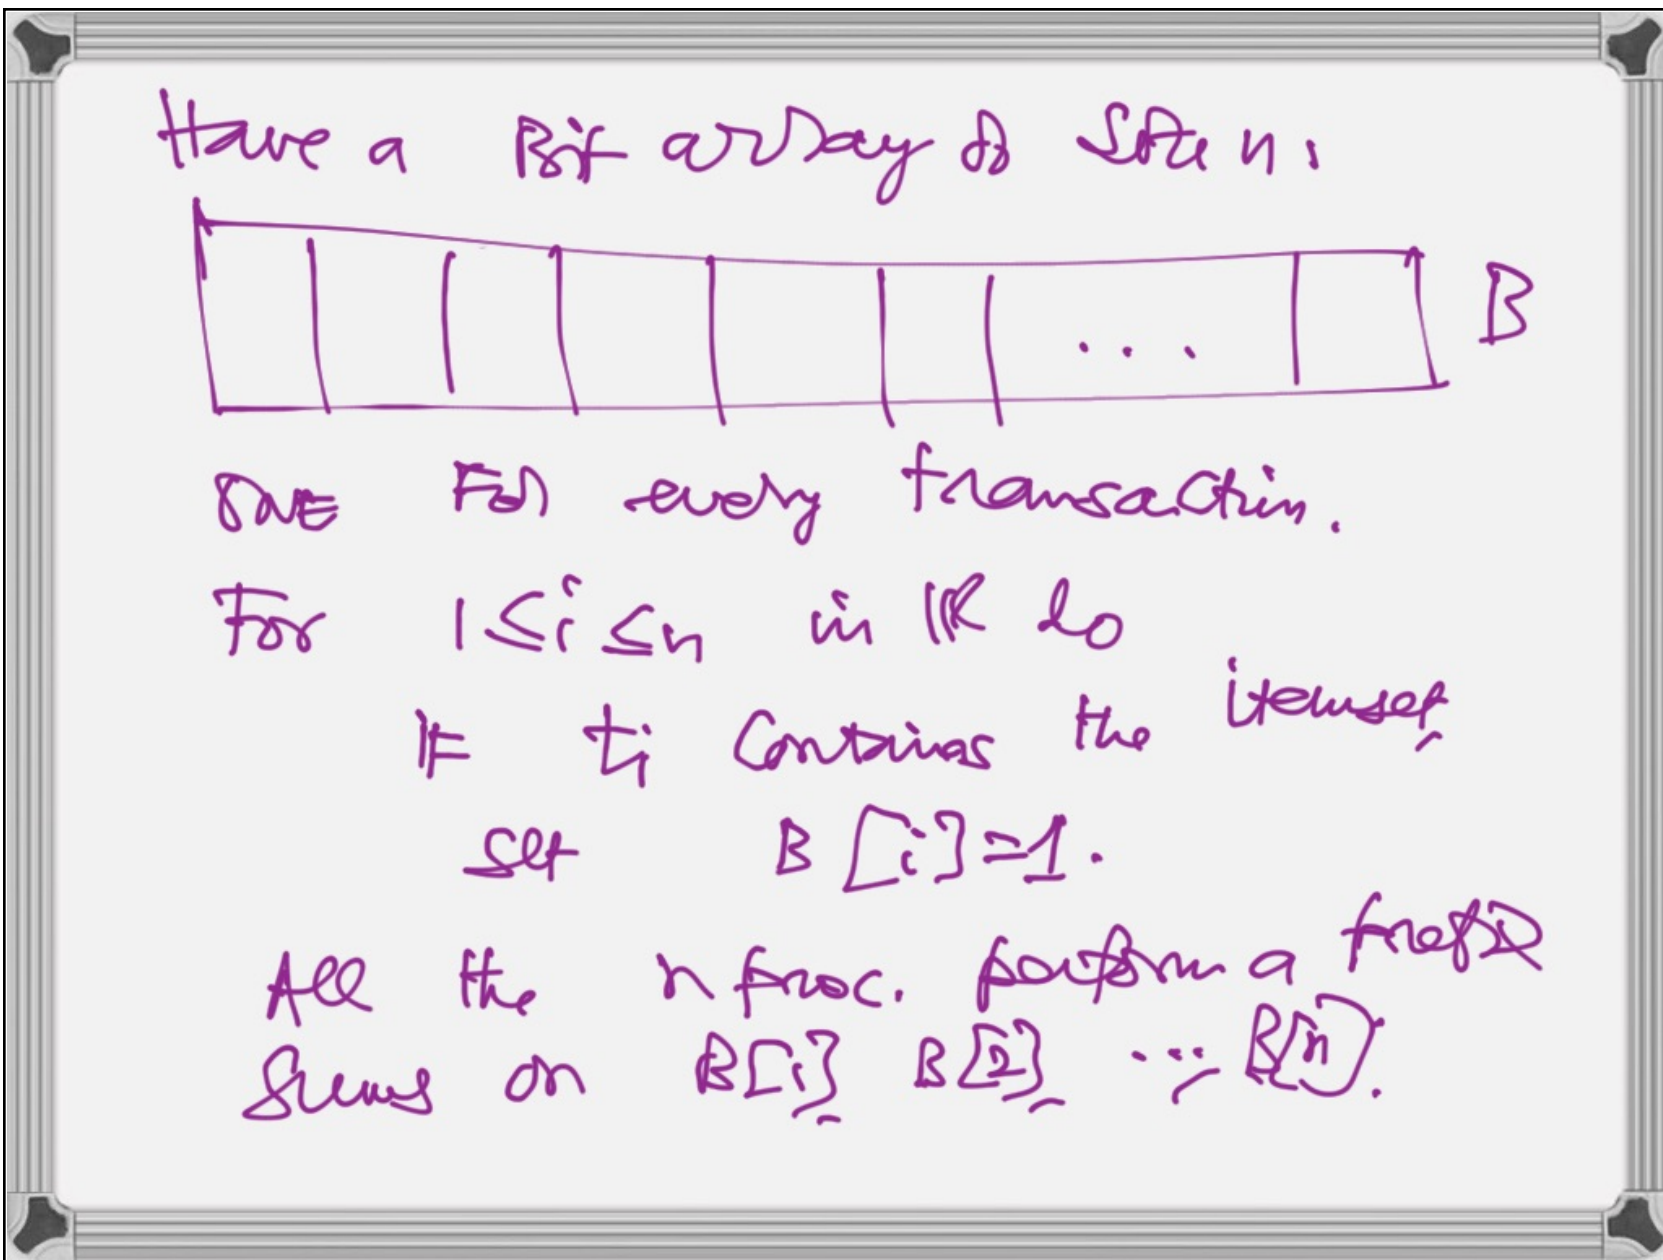 Have a Bit array of size n.
B
ONE For every transaction.
For 1 ≤ i ≤ n in || do
IF ti contains the itemset,
set B[i]=1.
All the n proc. perform a prefix
sums on B[1], B[2], ..., B[n].